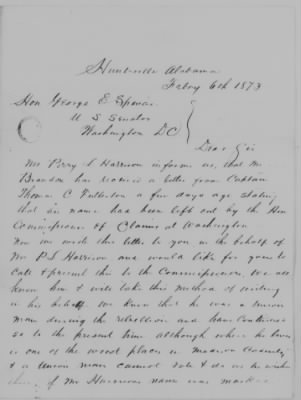 Huntsville Alabama
Febry 6th 1873
Hon George E Spencer
U S Senator
Washington DC
Dear Sir
Mr Perry L Harrison informs us, that Mr
Brandon has receive a letter from Captain
Thomas C Fullerton a few days ago stating
that his name has been left out by the Hon
Commissioner of Claims at Washington
Now we write this letter to you in the behalf of
Mr P L Harrison and would like for you to
call & present this to the Commissioners, We all
know him & will take this method of writing
in his behalf We know that he was a Union
man during the rebellion and have continued
so to the present time although where he lives
is one of the worst places in Madison County
& a Union man cannot vote & do as he wishes
there if Mr Harrison name was marked